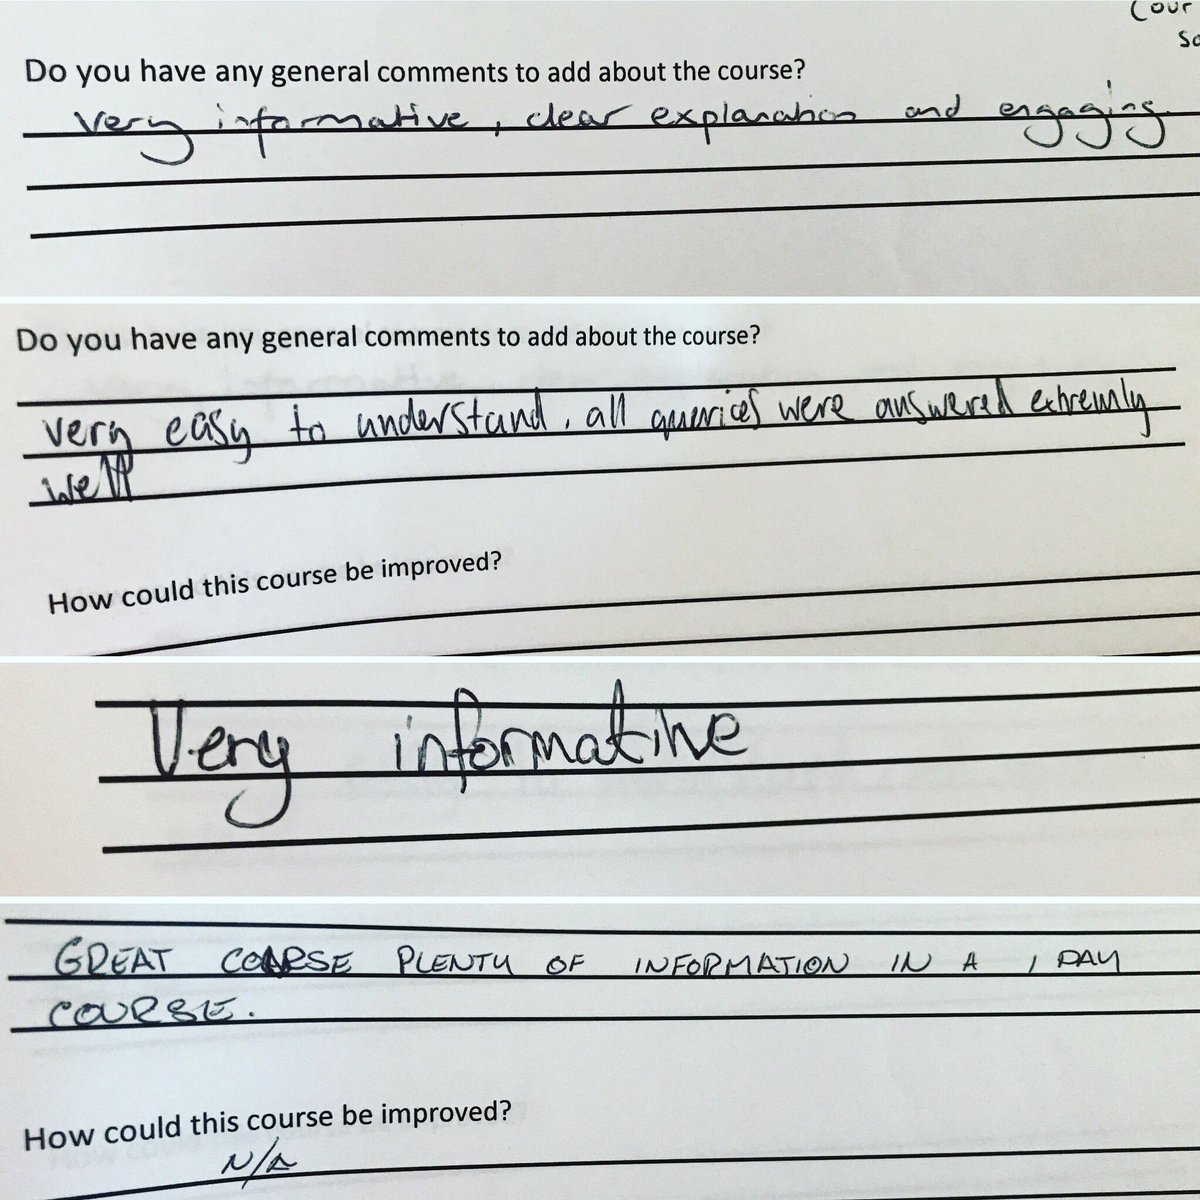 (our
So
Do you have any general comments to add about the course?
Very informative, clear explanation and engaging.
Do you have any general comments to add about the course?
very easy to understand, all queries were answered extremly
well
How could this course be improved?
Very informative
GREAT COURSE PLENTY OF INFORMATION IN A 1 DAY
COURSE.
How could this course be improved?
N/A